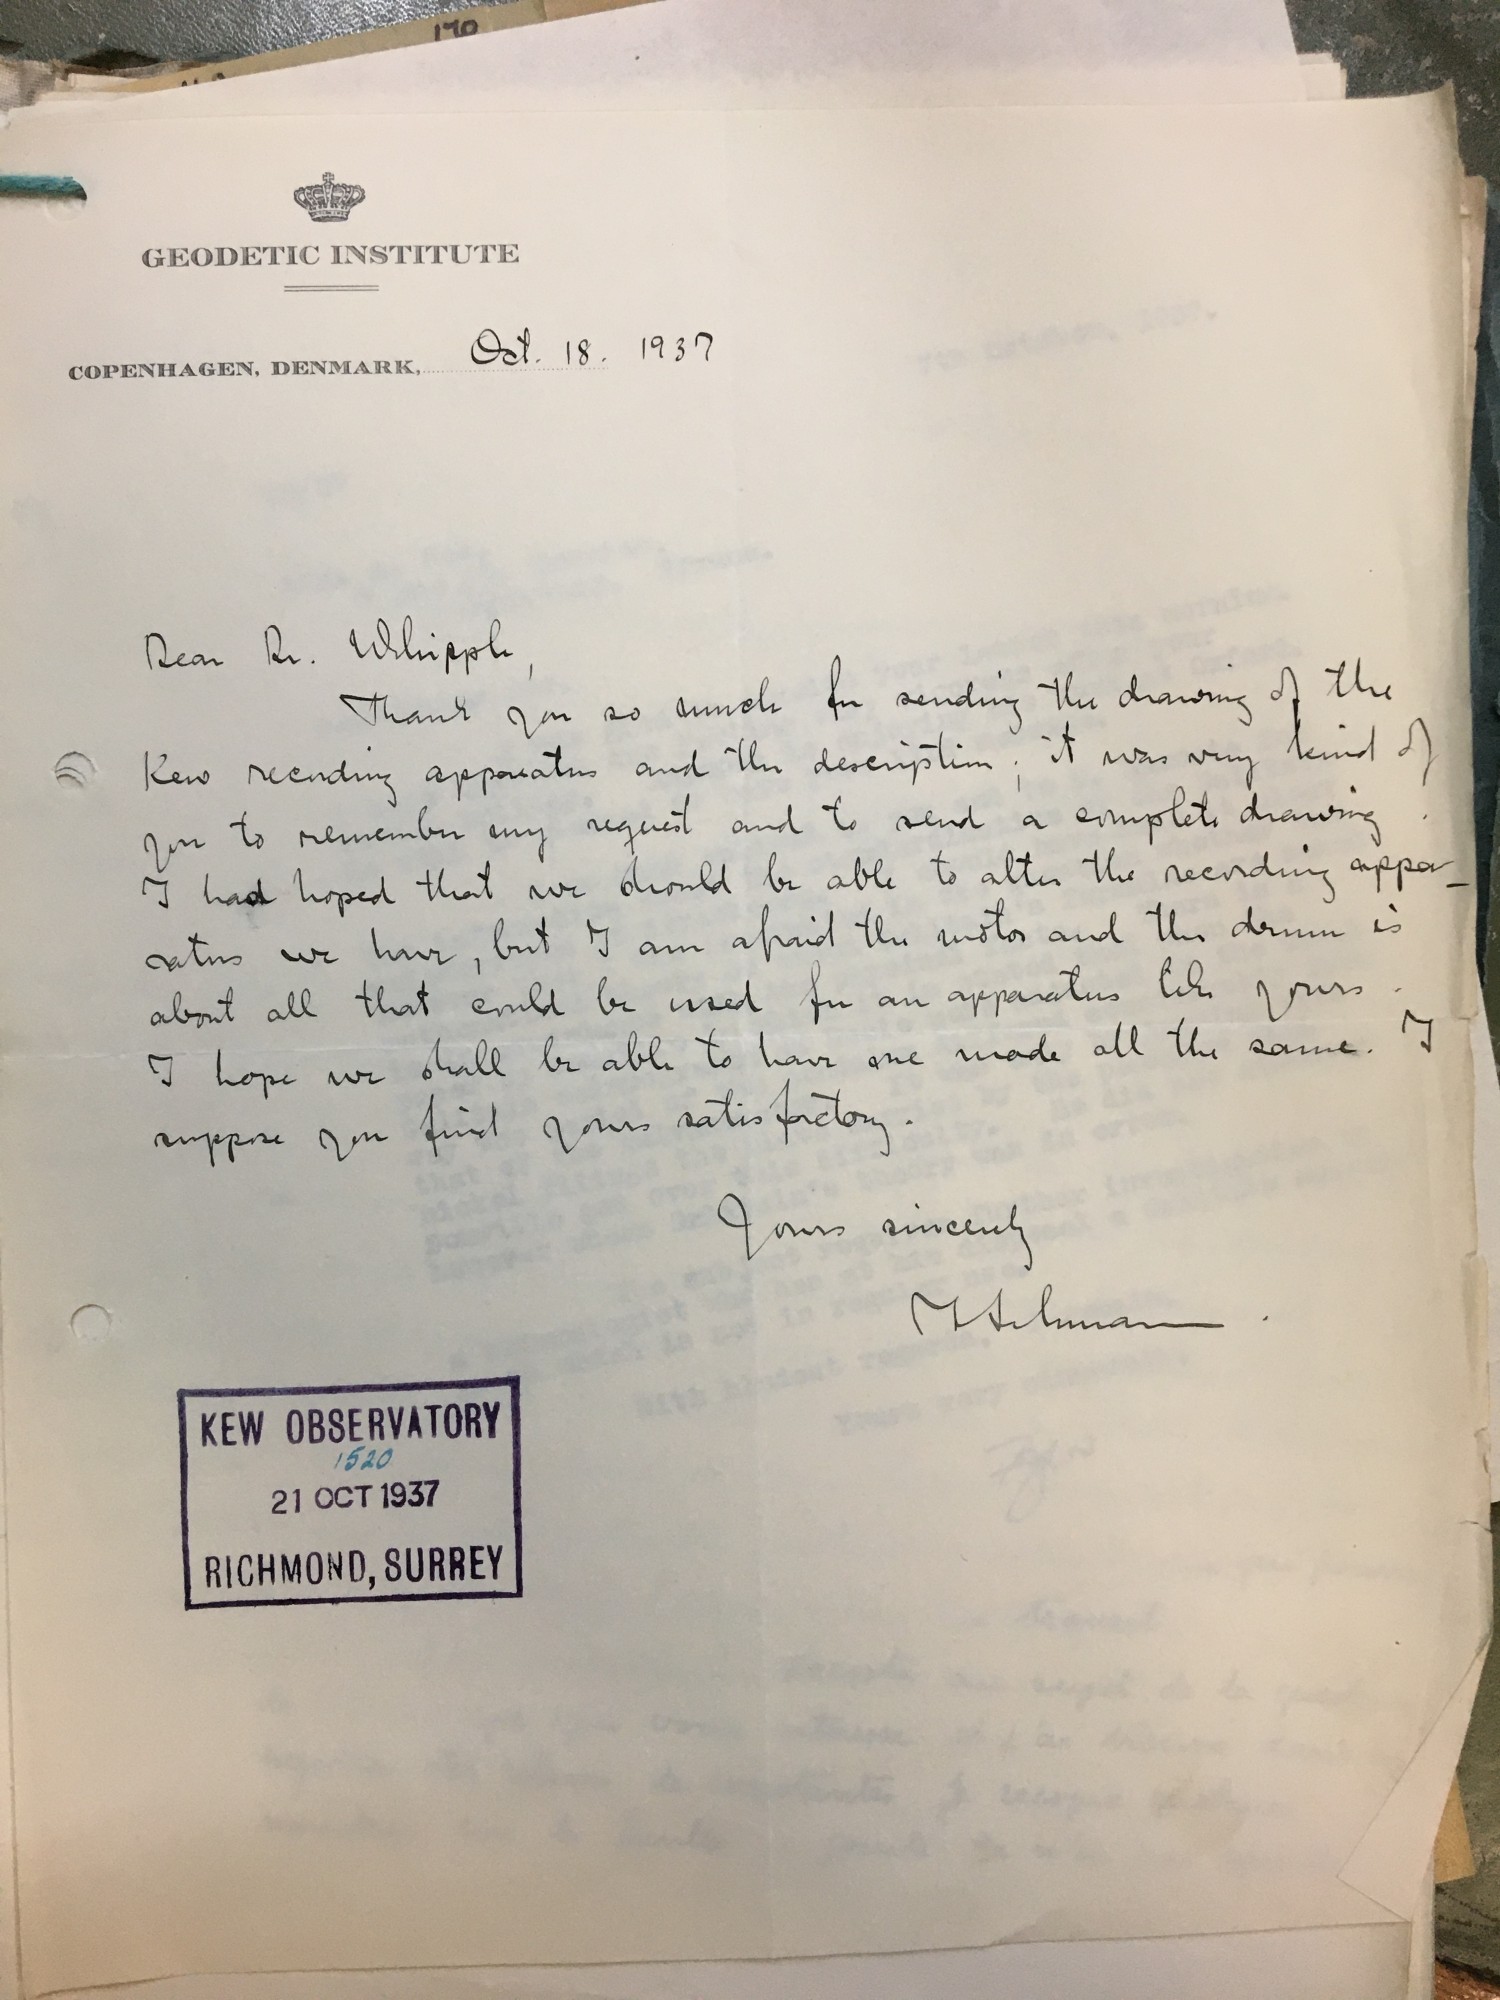 190
GEODETIC INSTITUTE
COPENHAGEN, DENMARK, Oct. 18. 1937
Dear Dr. Whipple,
Thank you so much for sending the drawing of the
Kew recording apparatus and the description; it was very kind of
you to remember my request and to send a complete drawing.
I had hoped that we should be able to alter the recording appa-
ratus we have, but I am afraid the motor and the drum is
about all that could be used for an apparatus like yours.
I hope we shall be able to have one made all the same. I
suppose you find yours satisfactory.
Yours sincerely
I Lehmann.
KEW OBSERVATORY
1520
21 OCT 1937
RICHMOND, SURREY